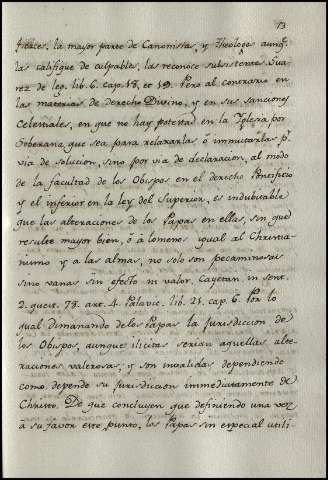 73
ficaces, la mayor parte de Canonistas, y Theologos aunq.
las califique de culpables, las reconoce subsistentes. Sua-
rez de leg. lib. 6. cap. 18. et 19. Pero al contrario en
las materias de derecho Divino, y en sus sanciones
Celestiales, en que no hay potestad en la Iglesia por
soberana que sea, para relaxarlas, ó inmutarlas p.r
via de solucion, sino por via de declaracion, al modo
de la facultad de los Obispos en el derecho Pontificio
y el inferior en la ley del Superior, es indubitable
que las alteraciones de los Papas en ellas, sin que
resulte mayor bien, ó á lo menos igual al Christia-
nismo y a las almas, no solo son pecaminosas
sino vanas sin efecto ni valor. Cayetan. in sent.
2. quest. 78. art. 4. Palavic. lib. 21. cap. 6. Por lo
qual dimanando de los Papas la Jurisdiccion de
los Obispos, aunque ilicitas serian aquellas alte-
raciones valerosas; y son invalidas dependiendo
como depende su jurisdiccion immediatamente de
Christo. De que concluyen que definiendo una vez
á su favor este punto, los Papas sin especial utili-